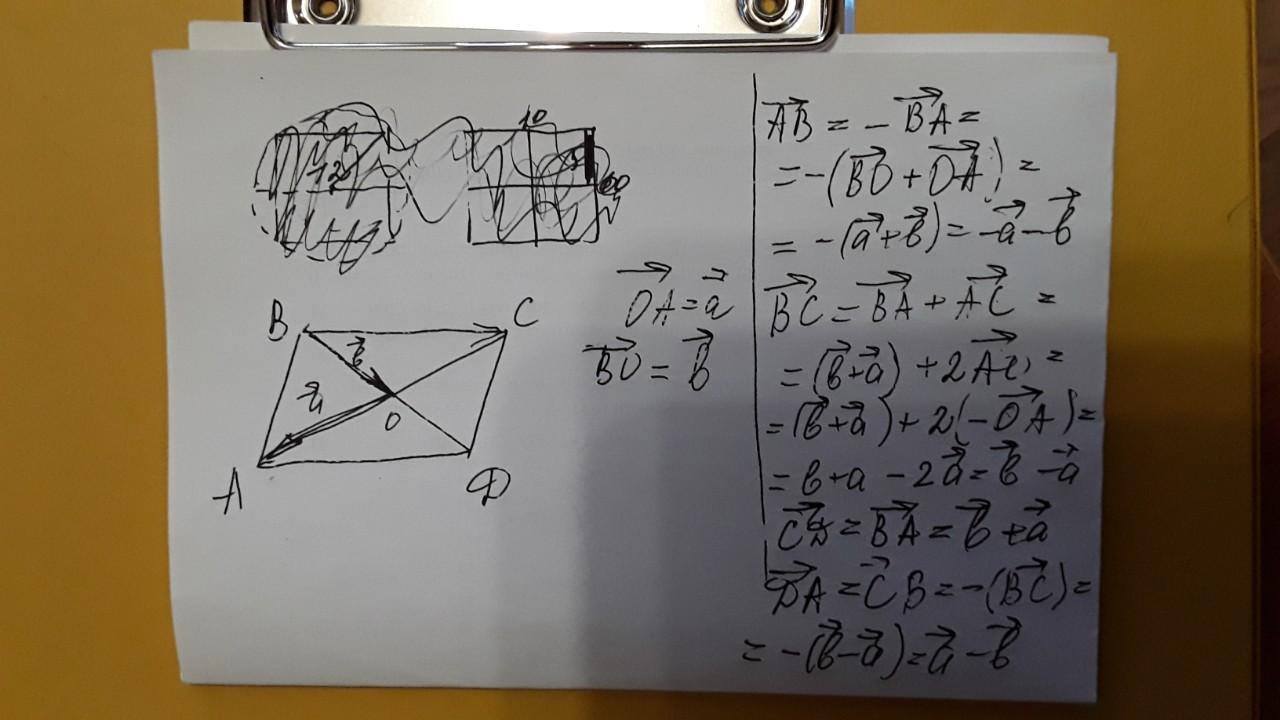 12
10
B
C
b⃗
a⃗
O
A
D
O͞A⃗ = a⃗
B͞O⃗ = b⃗
A͞B⃗ = - B͞A⃗ =
= -(B͞O⃗ + O͞A⃗) =
= -(a⃗ + b⃗) = -a⃗ - b⃗
B͞C⃗ = B͞A⃗ + A͞C⃗ =
= (b⃗ + a⃗) + 2A͞O⃗ =
= (b⃗ + a⃗) + 2(-O͞A⃗) =
= b + a - 2a⃗ = b⃗ - a⃗
C͞D⃗ = B͞A⃗ = b⃗ + a⃗
D͞A⃗ = C͞B⃗ = -(B͞C⃗) =
= -(b⃗ - a⃗) = a⃗ - b⃗